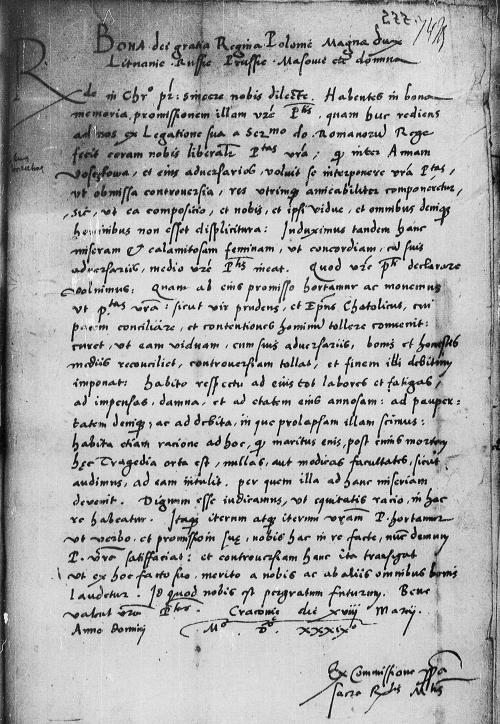 555.
745
BONA dei gratia Regina Polonie Magna dux
Litnanie Russie Prussie Masovie etc domina
Rde in Chro pr: sincere nobis dilecte. Habentes in bona
memoria, promissionem illam vre Ptis quam huc rediens
ad nos ex Legatione sua a Sermo do. Romanorum Rege
fecit coram nobis liberalr Ptas vra; q inter Annam
et eius adversarios, voluit se interponere vra Ptas,
ut obmissa controversia, res utrinque amicabiliter componeretur,
sic, ut ea compositio, et nobis, et ipsi vidue, et omnibus denique
hominibus non esset displicitura: Induximus tandem hanc
miseram et calamitosam feminam, ut concordiam, cu suis
adversariis, medio vre Ptis ineat. Quod vre pti declarare
volumus: Quam ab eius promisso hortamur ac monemus
ut ptas vra: sicut vir prudens, et Epus Chatolicus, cui
pacem conciliare, et contentiones hominu tollere convenit:
curet, ut eam viduam, cum suis adversariis, bonis et honestis
mediis reconciliet, controversiam tollat, et finem illi debitum
imponat: habito respectu ad eius tot labores et fatigas,
ad impensas, damna, et ad etatem eius annosam: ad pauper-
tatem denique; ac ad debita, in que prolapsam illam scimus:
habita etiam racione ad hoc, q maritus eius, post cuius mortem
hec Tragedia orta est, nullas, aut modicas facultates, sicut
audimus, ad eam intulit. per quem illa ad hanc miseriam
devenit. Dignum esse iudicamus, ut equitatis racio, in hac
re habeatur. Itaque iterum atque iterum vram P. hortamur
ut verbo, et promissioni sue, nobis hac in re facte, nuc demum
P. vra satisfaciat: et controversiam hanc ita transigat
ut ex hoc facto suo, merito a nobis ac ab aliis omnibus bonis
laudetur. Id quod nobis est pergratum futurum. Bene
valeat vra Ptas. Cracovie die xviij Maij.
Anno domini Mo Do XXXIXo
Ex Commissione ppa
Sacre Rtis Mtis